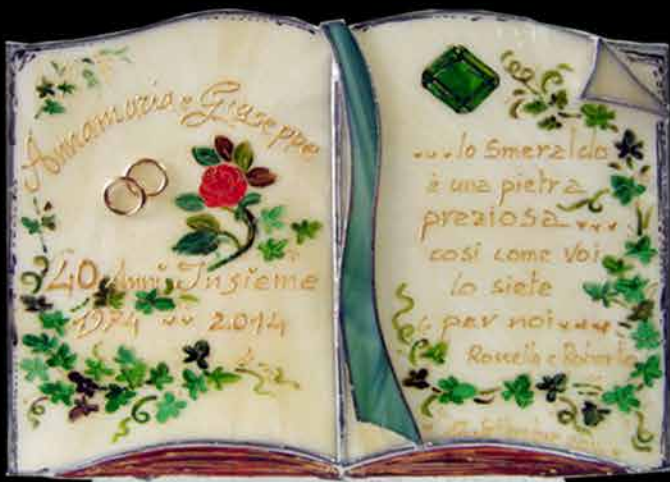 Annamaria e Giuseppe
40 Anni Insieme
1974 ~~ 2.014
...lo Smeraldo
è una pietra
preziosa...
così come voi
lo siete
per noi....
Rossella e Roberto